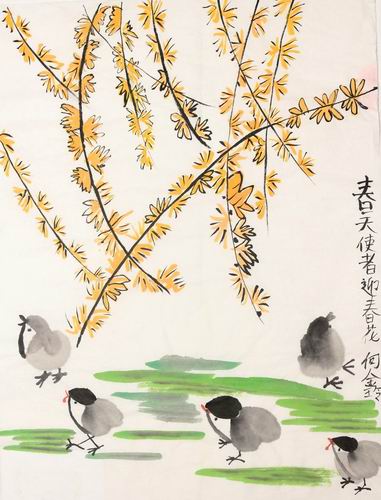 春天使者迎春花 何金